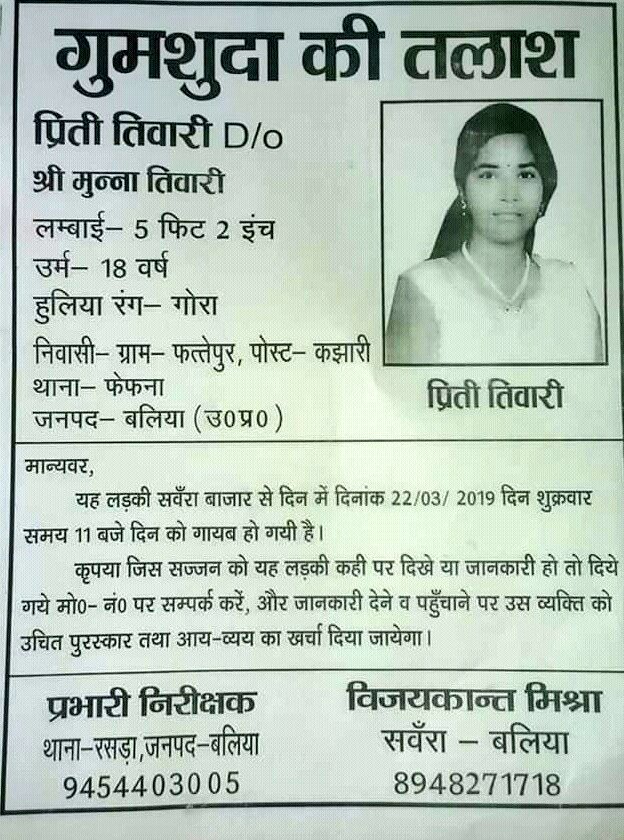 गुमशुदा की तलाश
प्रिती तिवारी D/o
श्री मुन्ना तिवारी
लम्बाई– 5 फिट 2 इंच
उर्म– 18 वर्ष
हुलिया रंग– गोरा
निवासी– ग्राम– फत्तेपुर, पोस्ट– कझारी
थाना– फेफना
जनपद– बलिया (उ0प्र0)
प्रिती तिवारी
मान्यवर,
यह लड़की सवँरा बाजार से दिन में दिनांक 22/03/ 2019 दिन शुक्रवार
समय 11 बजे दिन को गायब हो गयी है।
कृपया जिस सज्जन को यह लड़की कही पर दिखे या जानकारी हो तो दिये
गये मो0– नं0 पर सम्पर्क करें, और जानकारी देने व पहुँचाने पर उस व्यक्ति को
उचित पुरस्कार तथा आय-व्यय का खर्चा दिया जायेगा।
प्रभारी निरीक्षक
थाना-रसड़ा,जनपद-बलिया
9454403005
विजयकान्त मिश्रा
सवँरा – बलिया
8948271718